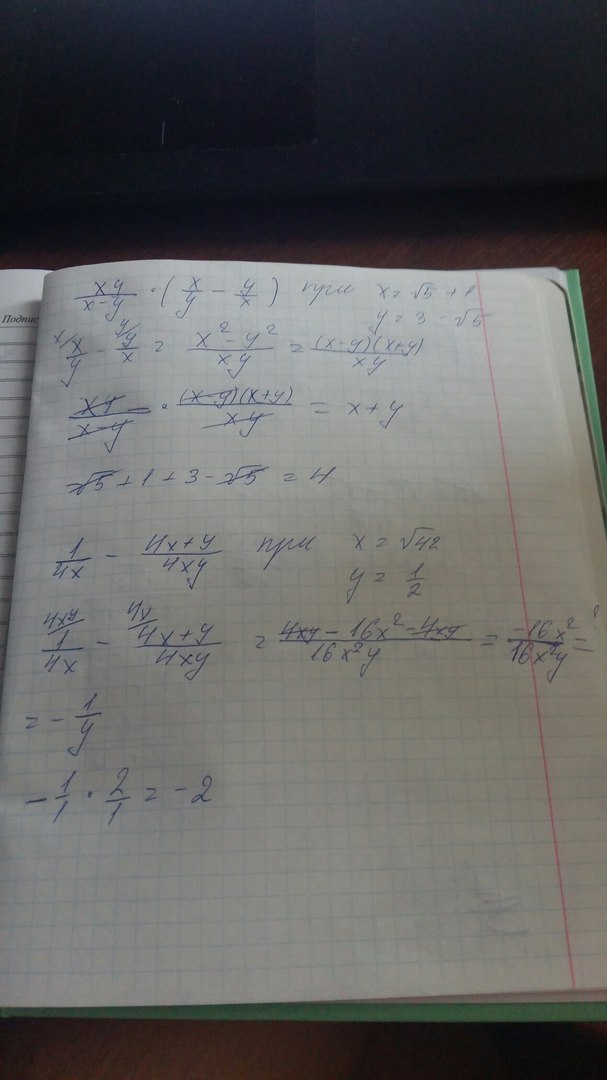 Подпис
xy/(x-y) · (x/y - y/x) при x = √5 + 1
y = 3 - √5
x/ x/y - y/ y/x = (x² - y²)/(xy) = (x-y)(x+y)/(xy)
xy/(x-y) · (x-y)(x+y)/(xy) = x+y
√5 + 1 + 3 - √5 = 4
1/(4x) - (4x+y)/(4xy) при x = √42
y = 1/2
4xy/ 1/(4x) - 4x/ (4x+y)/(4xy) = (4xy - 16x² - 4xy)/(16x²y) = (-16x²)/(16x²y) =
= - 1/y
- 1/1 · 2/1 = -2